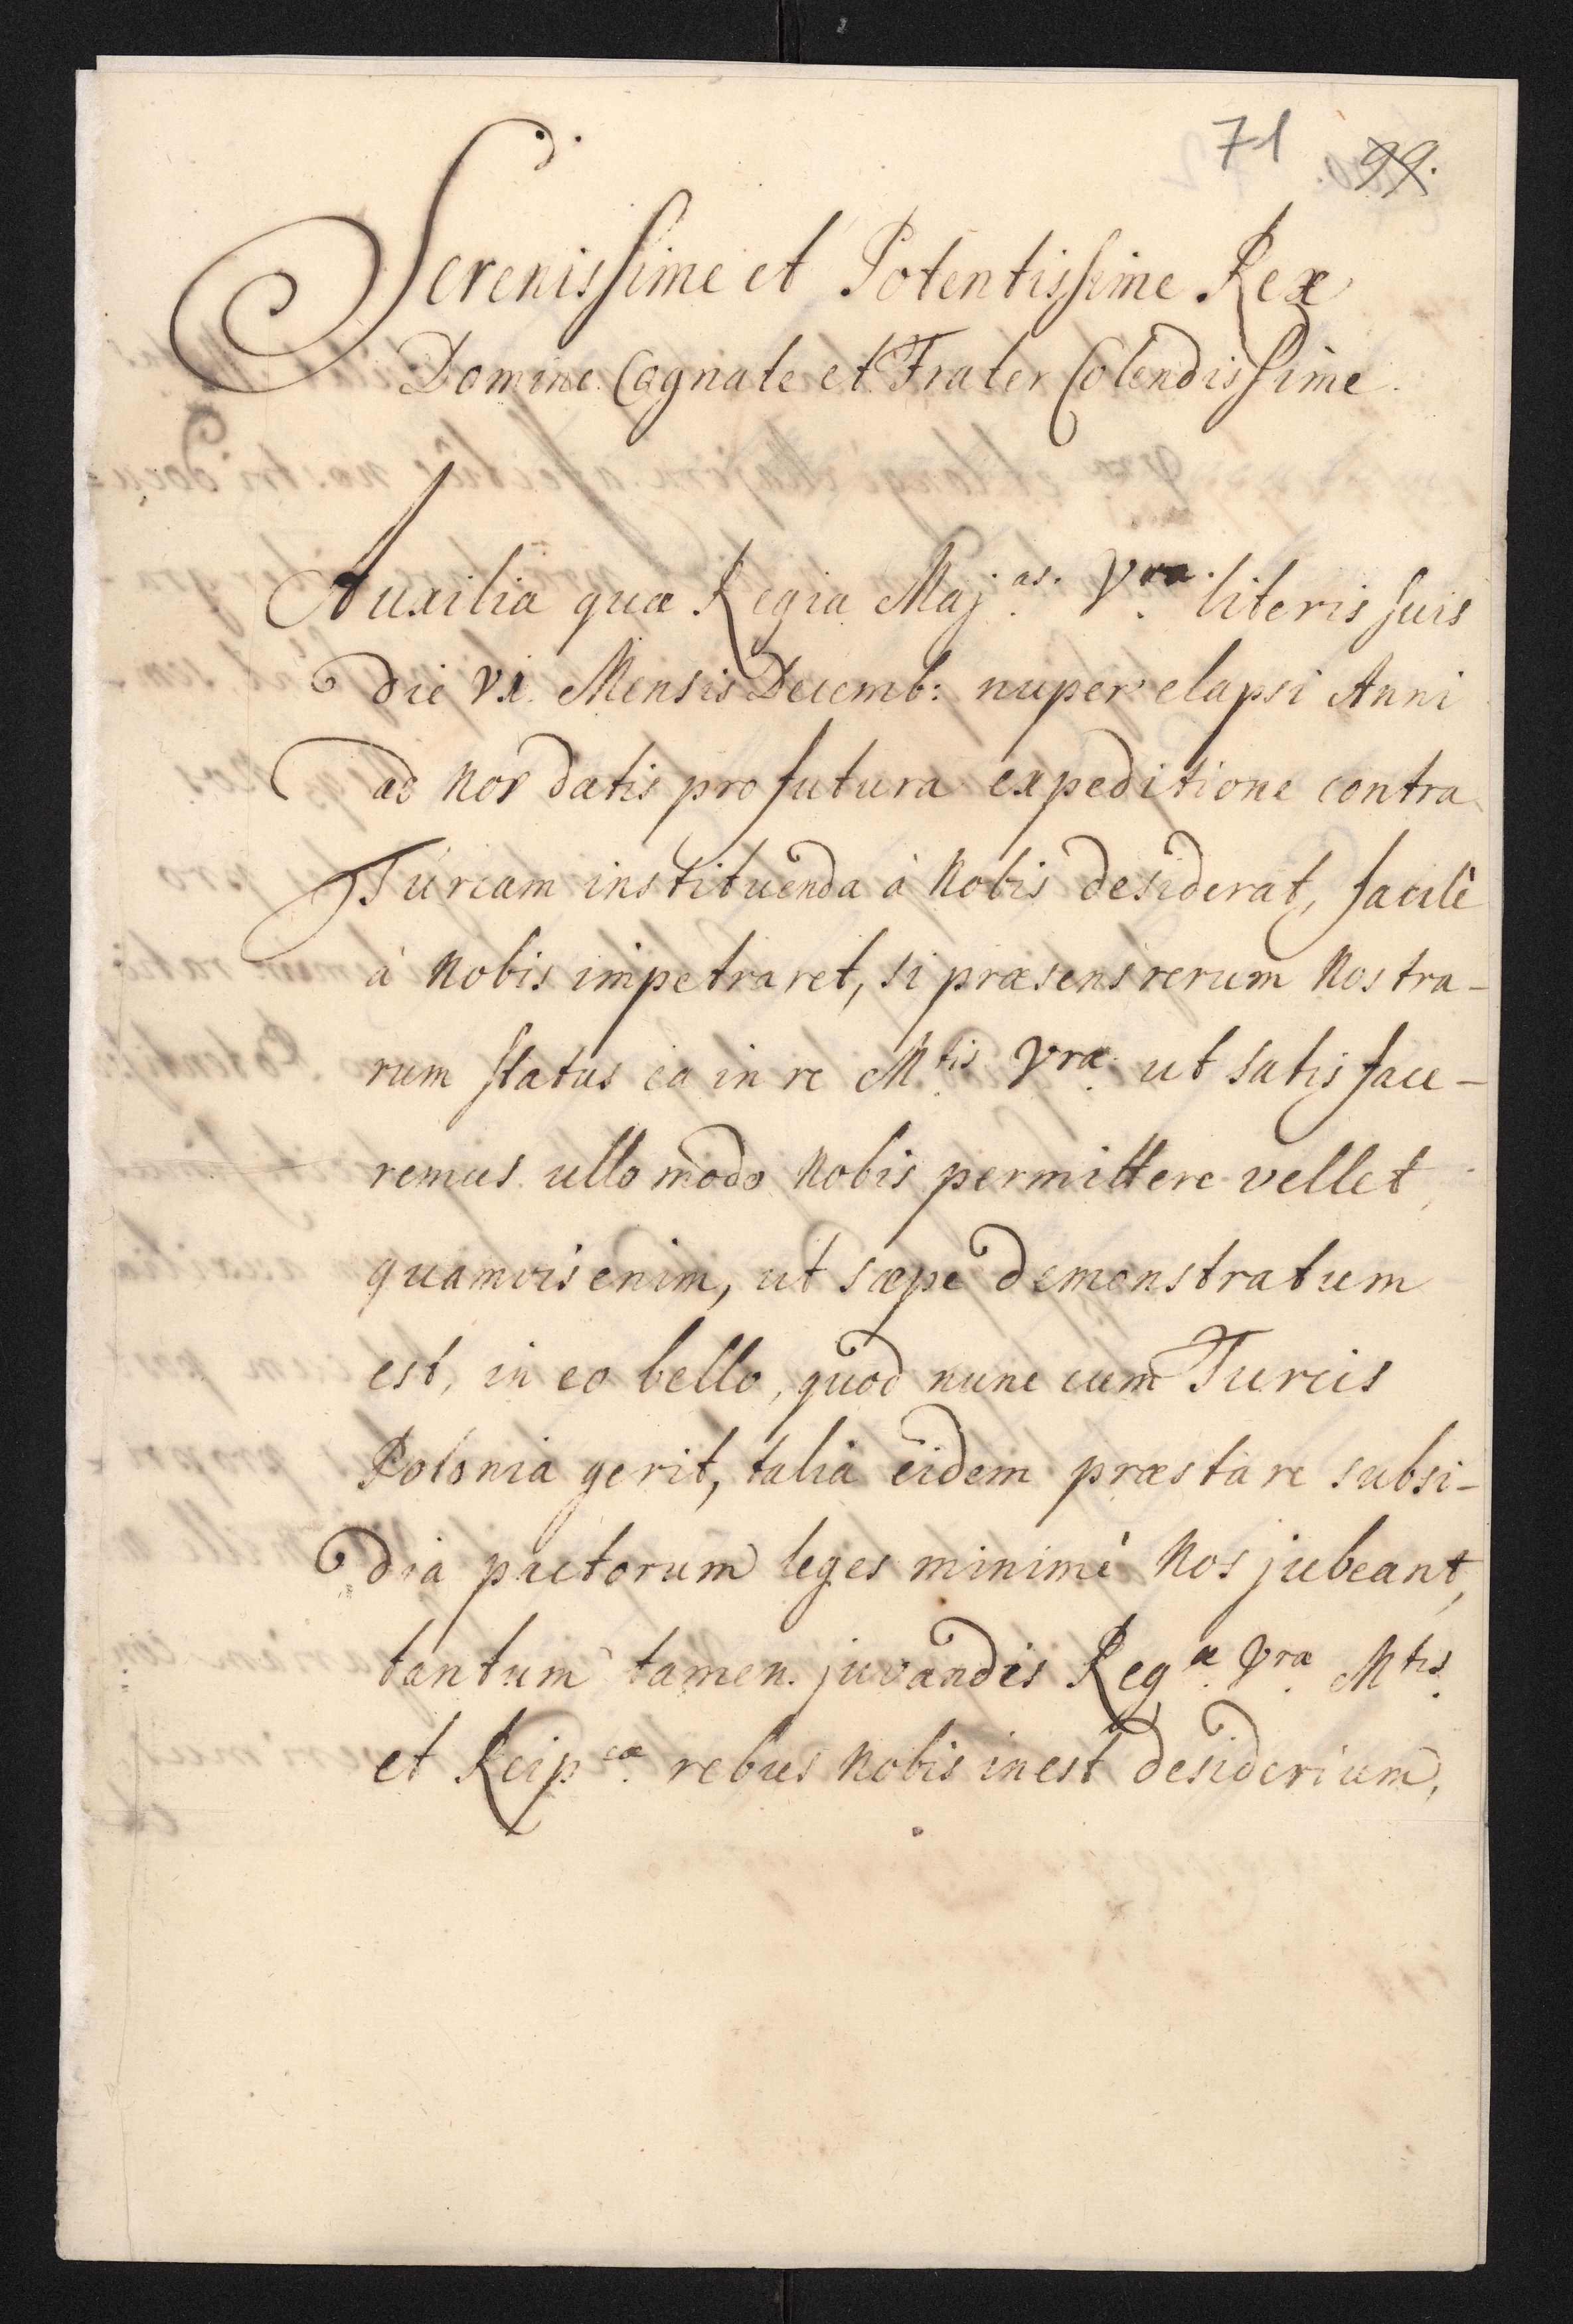 71 99.
Serenissime et Potentissime Rex
Domine Cognate et Frater Colendissime.
Auxilia quæ Regia Maj.as. Vra. literis suis
die VI. Mensis Decemb: nuper elapsi Anni
ad Nos datis pro futura expeditione contra
Turcam instituenda à Nobis desiderat, facilè
à Nobis impetraret, si præsens rerum Nostra-
rum status ea in re M.tis Vræ. ut satisface-
remus ullo modo Nobis permittere vellet,
quamvis enim, ut sæpe demonstratum
est, in eo bello, quod nunc cum Turcis
Polonia gerit, talia eidem præstare subsi-
dia pactorum leges minimè Nos jubeant,
tantum tamen juvandis Reg.æ Vræ. M.tis
et Reip.cæ rebus Nobis inest desiderium,